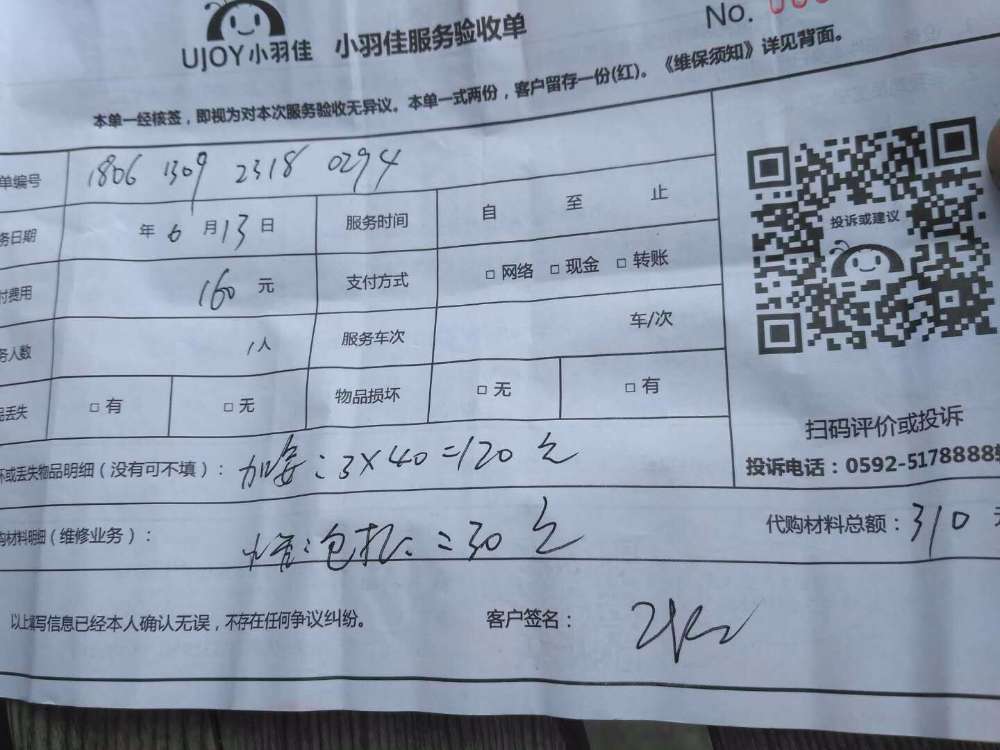 UJOY小羽佳 小羽佳服务验收单 No.
本单一经核签，即视为对本次服务验收无异议。本单一式两份，客户留存一份(红)。《维保须知》详见背面。
单编号 1806 1309 2318 0294
务日期 年 6 月 13 日 服务时间 自 至 止
付费用 160 元 支付方式 □ 网络 □ 现金 □ 转账
务人数 1人 服务车次 车/次
品丢失 □ 有 □ 无 物品损坏 □ 无 □ 有
投诉或建议
扫码评价或投诉
投诉电话：0592-5178888
坏或丢失物品明细（没有可不填）： 3×40=120元
购材料明细（维修业务）： =30元 代购材料总额：310
以上填写信息已经本人确认无误，不存在任何争议纠纷。 客户签名：